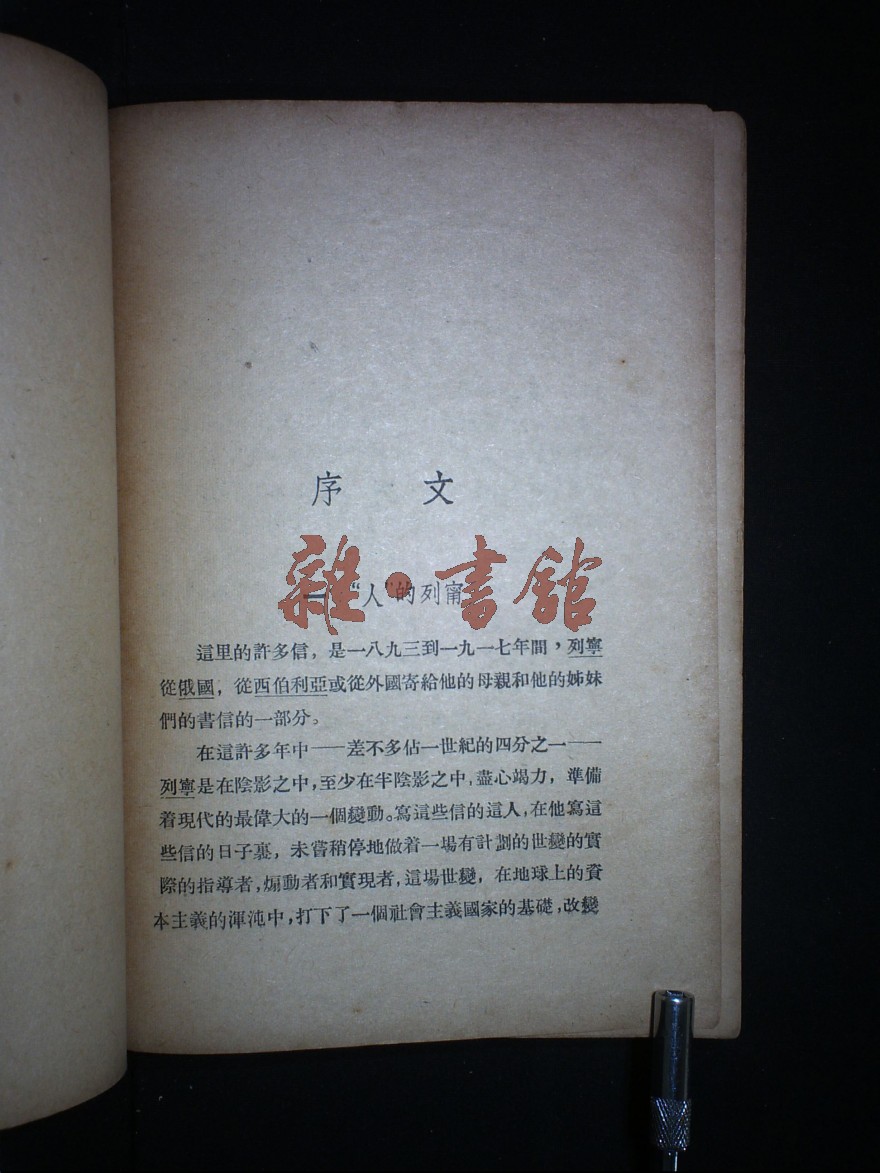 序 文
一 “人”的列甯
雜·書館
這里的許多信，是一八九三到一九一七年間，列寧
從俄國，從西伯利亞或從外國寄給他的母親和他的姊妹
們的書信的一部分。
在這許多年中——差不多佔一世紀的四分之一——
列寧是在陰影之中，至少在半陰影之中，盡心竭力，準備
着現代的最偉大的一個變動。寫這些信的這人，在他寫這
些信的日子裏，未嘗稍停地做着一場有計劃的世變的實
際的指導者，煽動者和實現者，這場世變，在地球上的資
本主義的渾沌中，打下了一個社會主義國家的基礎，改變